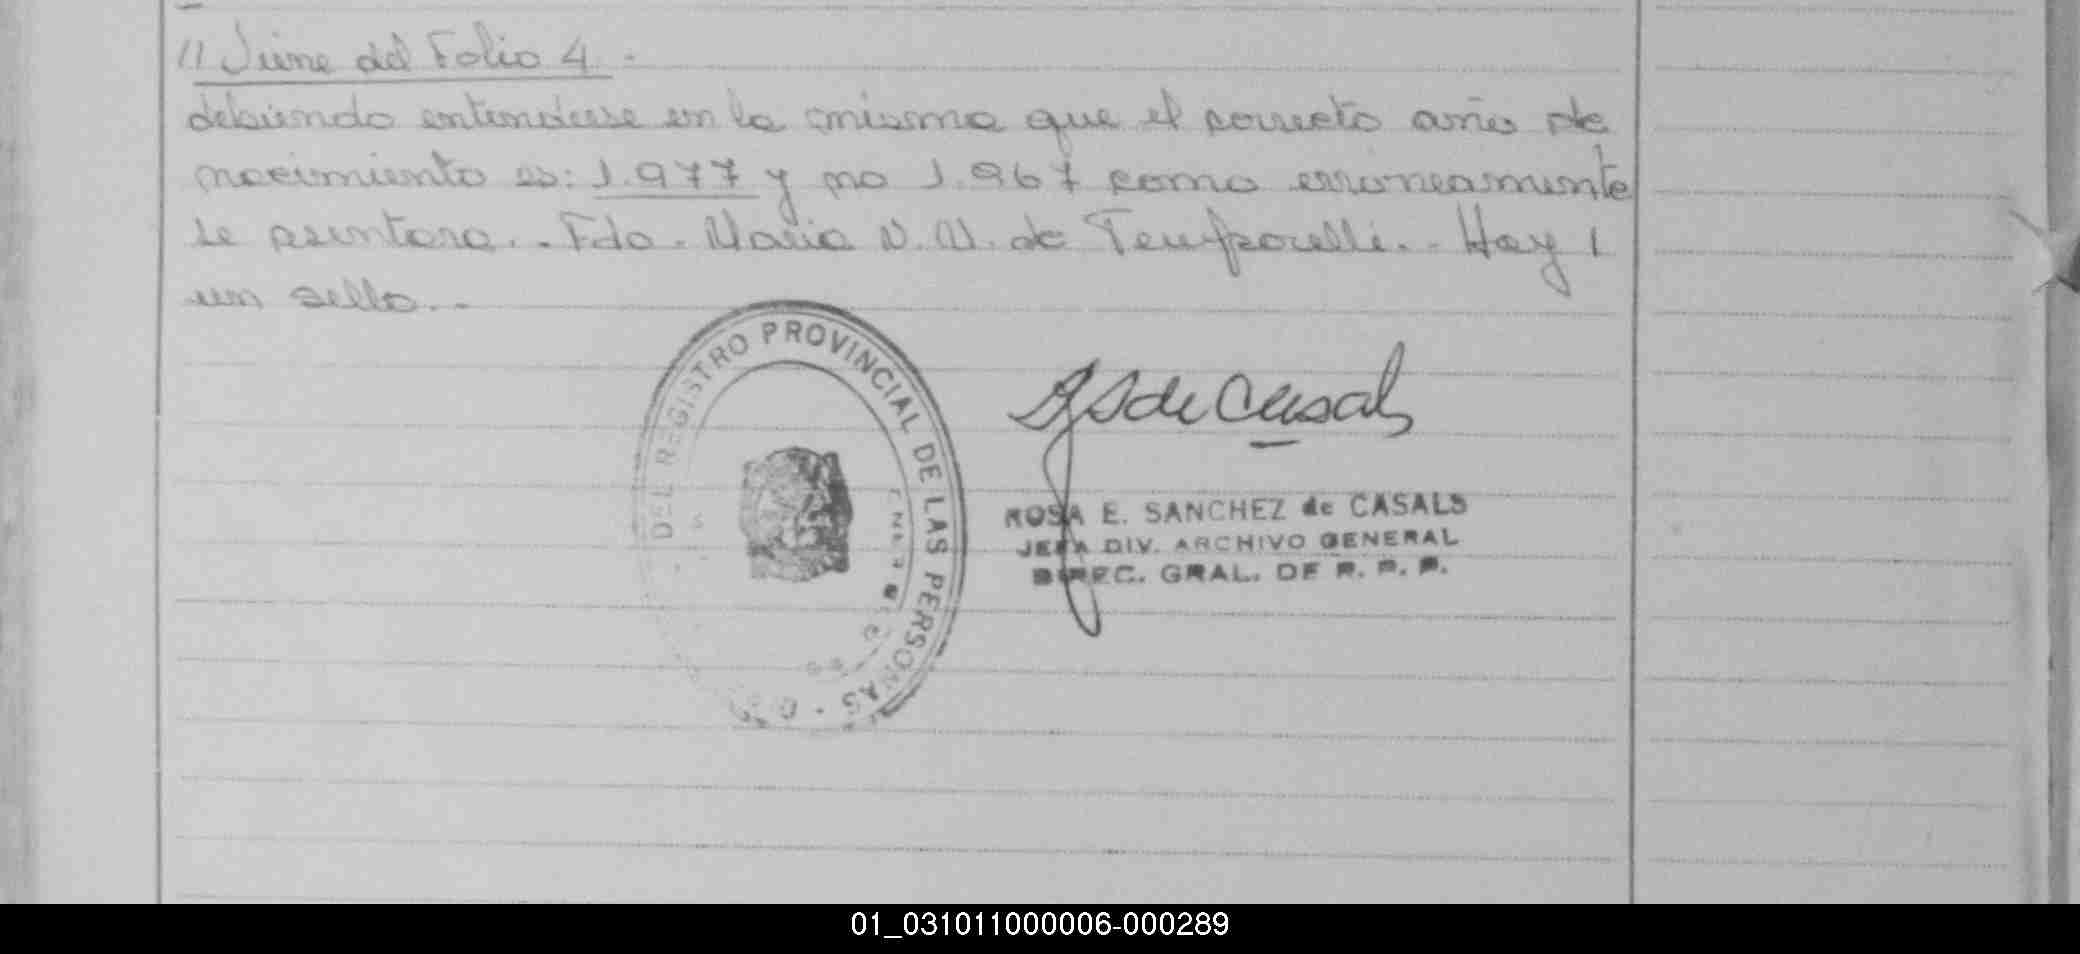 // Viene del Folio 4.-
debiendo entenderse en la misma que el correcto año de
nacimiento es: 1.977 y no 1.967 como erroneamente
se asentara.- Fdo. Maria N. N. de Temporelli.- Hay
un sello.-
DEL REGISTRO PROVINCIAL DE LAS PERSONAS
de Casals
ROSA E. SANCHEZ de CASALS
JEFA DIV. ARCHIVO GENERAL
DIREC. GRAL. DE R. P. P.
01_031011000006-000289